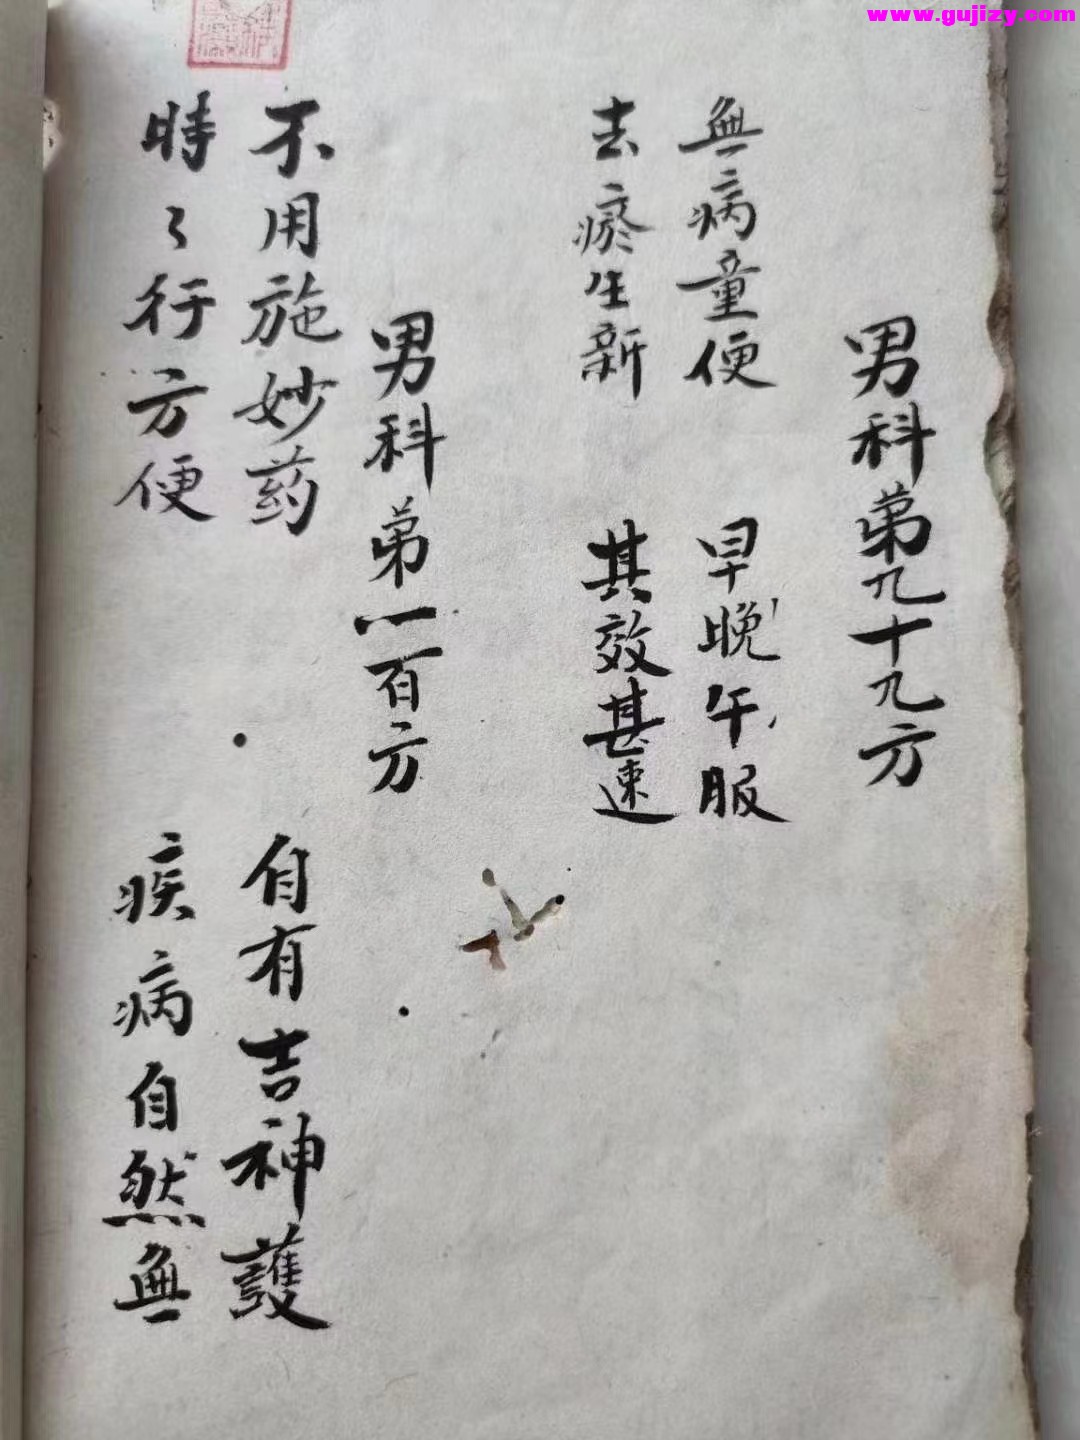 www.gujizy.com
男科苐九十九方
無病童便 早晚午服
去瘀生新 其效甚速
男科苐一百方
不用施妙药 自有吉神護
時々行方便 疾病自然無